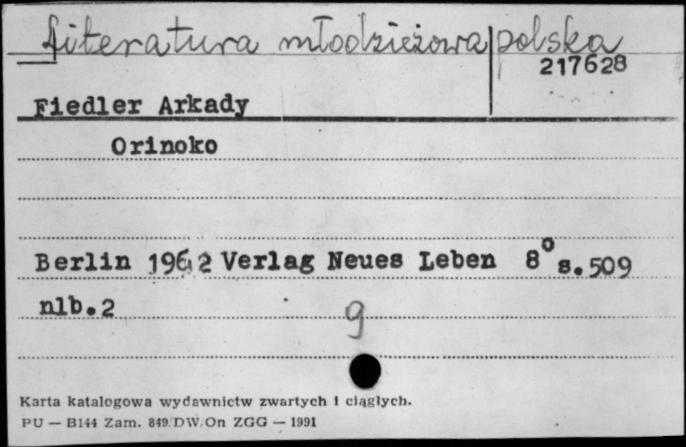 Literatura młodzieżowa polska
217628
Fiedler Arkady
Orinoko
Berlin 1962 Verlag Neues Leben 8° s.509
nlb.2
9
Karta katalogowa wydawnictw zwartych i ciągłych.
PU — B144 Zam. 849.DW.On ZGG — 1991